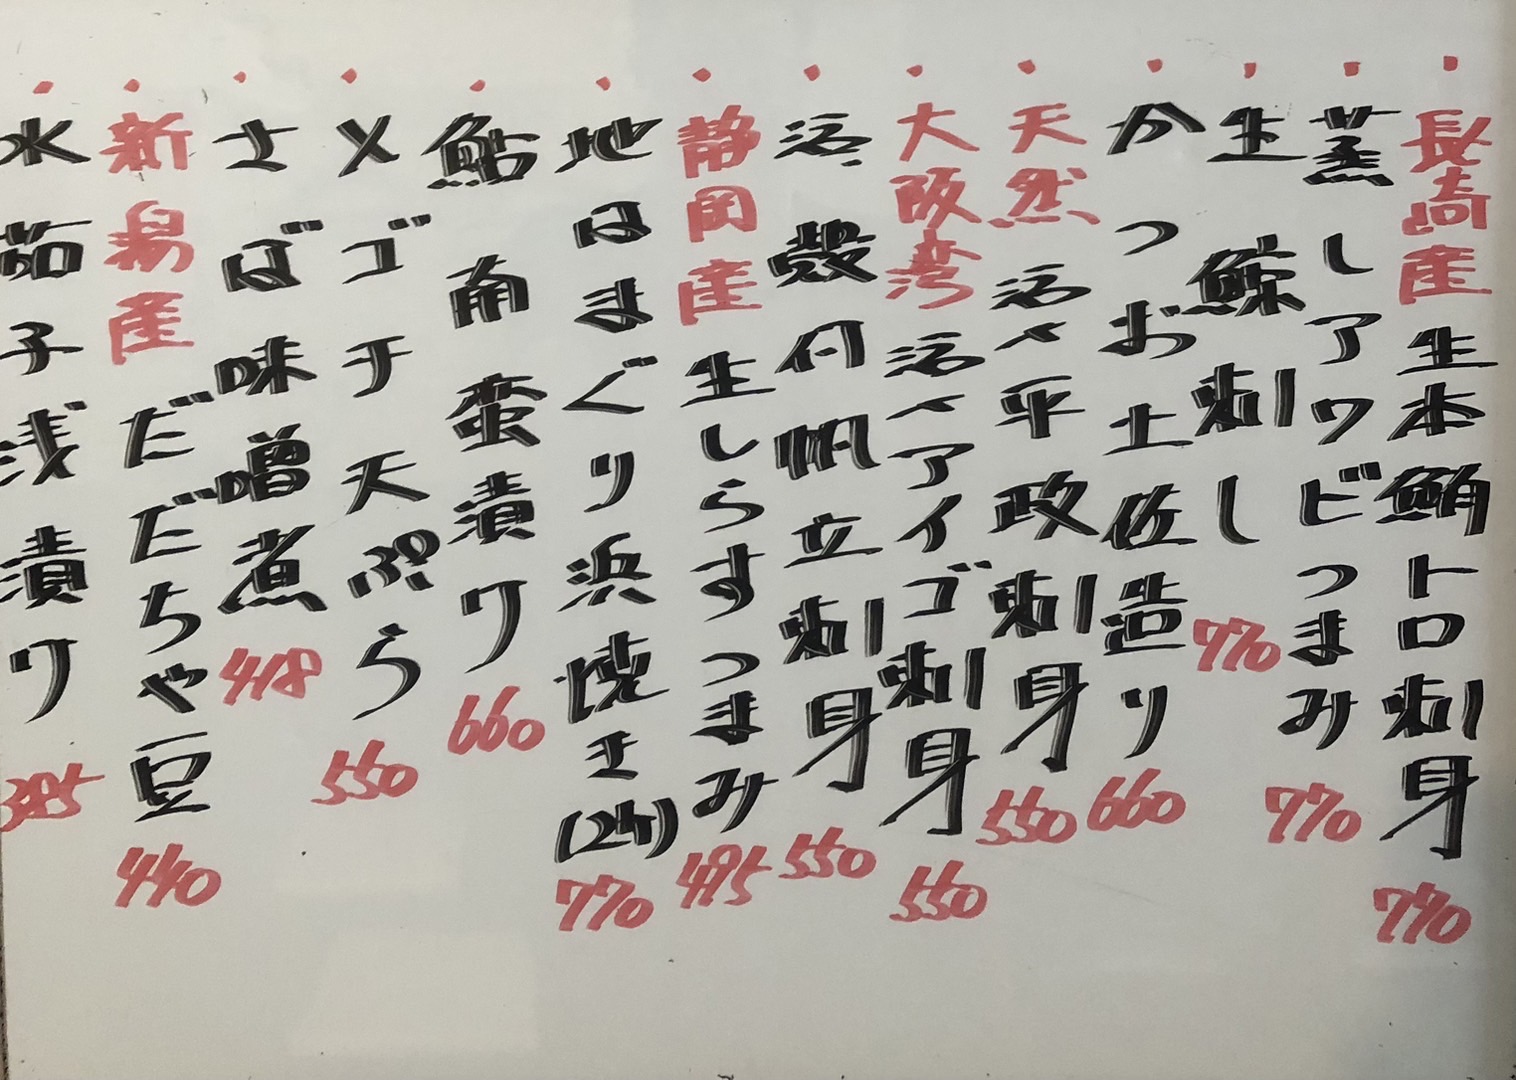 長崎産生本鮪トロ刺身 770
蒸しアワビつまみ 770
生鯨刺し 770
かつお土佐造り 660
天然活〆平政刺身 550
大阪湾活〆アイゴ刺身 550
活殻付帆立刺身 550
静岡産生しらすつまみ 495
地はまぐり浜焼き(2ケ) 770
鮎南蛮漬け 660
メゴチ天ぷら 550
さば味噌煮 418
新潟産だだちゃ豆 440
水茄子浅漬け 385